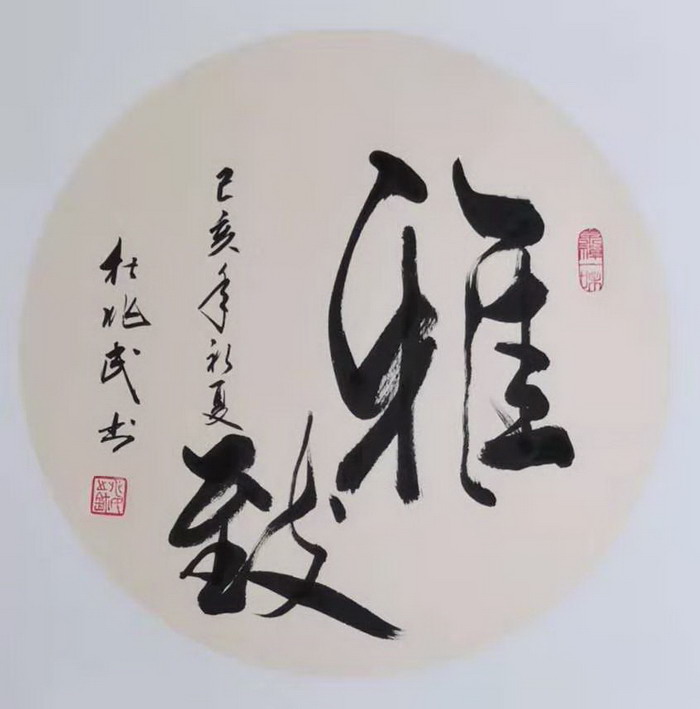 雅
致
己亥年初夏
杜兆民书